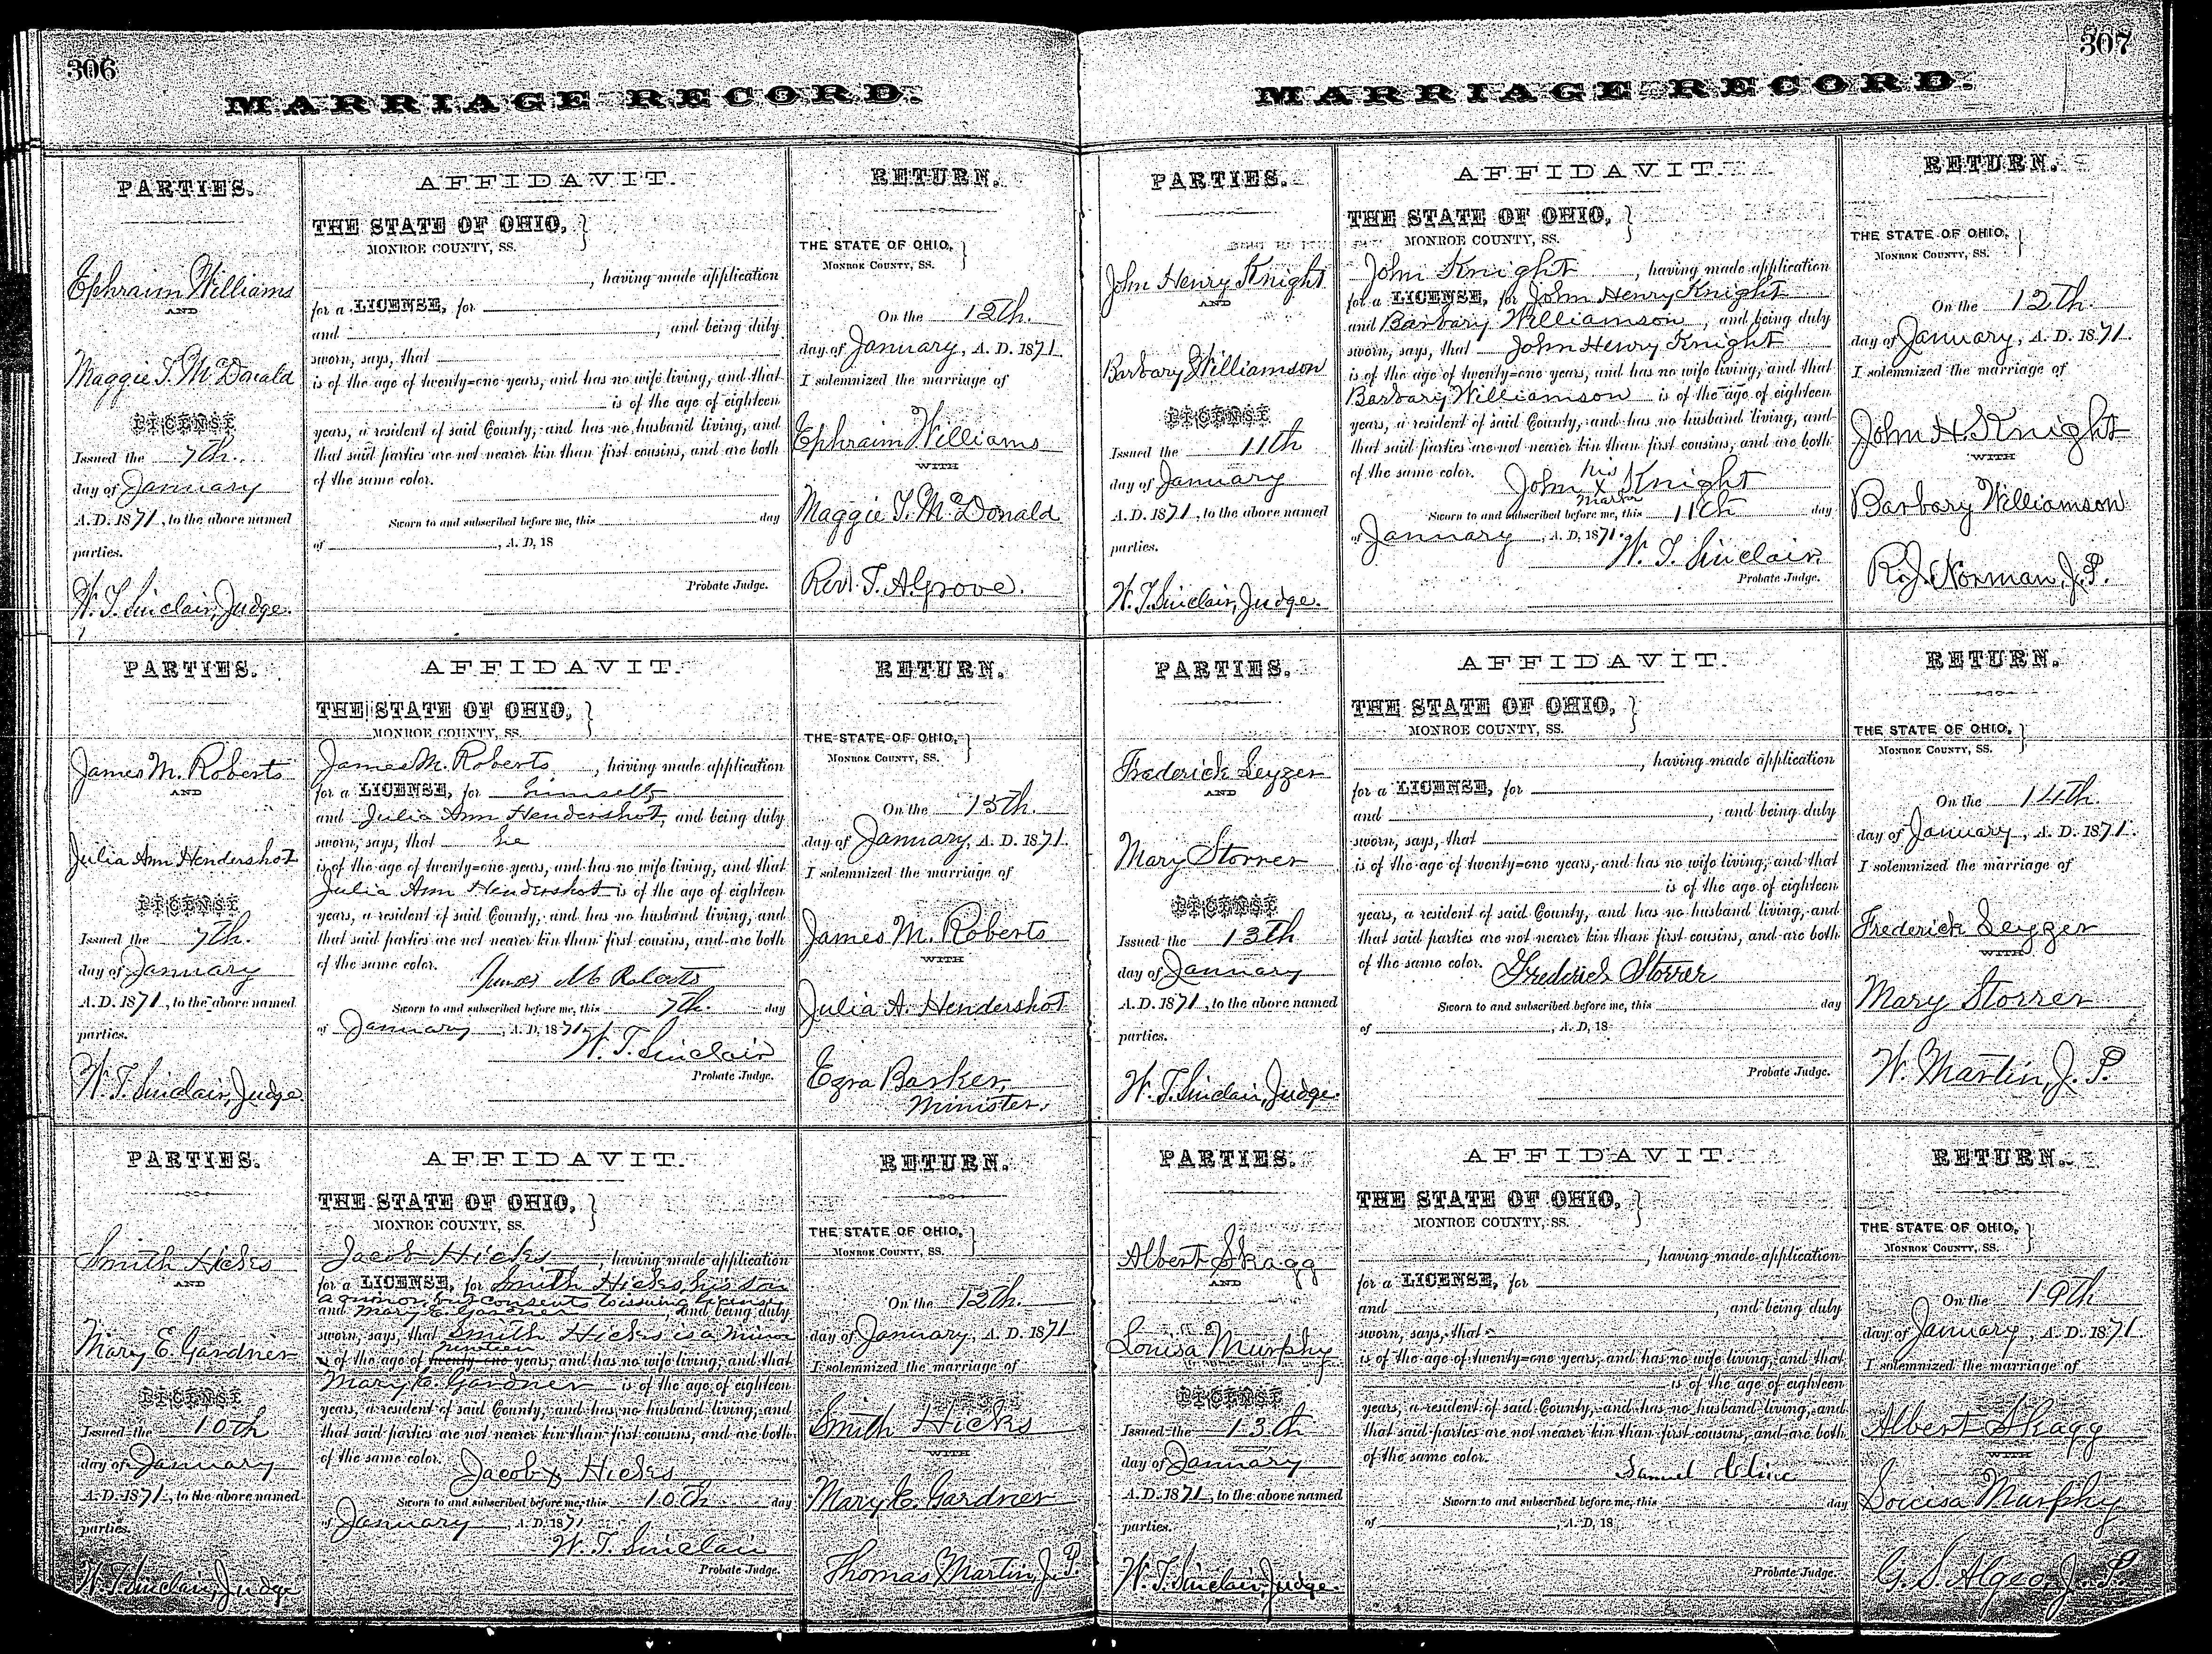 306
MARRIAGE RECORD.
PARTIES.
Ephraim Williams
AND
Maggie T. McDonald
LICENSE
Issued the 7th.
day of January
A. D. 1871, to the above named
parties.
W. T. Sinclair, Judge.
AFFIDAVIT.
THE STATE OF OHIO,
MONROE COUNTY, SS.
, having made application
for a LICENSE, for
and , and being duly
sworn, says, that
is of the age of twenty-one years, and has no wife living, and that
is of the age of eighteen
years, a resident of said County, and has no husband living, and
that said parties are not nearer kin than first cousins, and are both
of the same color.
Sworn to and subscribed before me, this day
of , A. D, 18
Probate Judge.
RETURN.
THE STATE OF OHIO,
MONROE COUNTY, SS.
On the 12th.
day of January, A. D. 1871.
I solemnized the marriage of
Ephraim Williams
WITH
Maggie T. McDonald
Rev. T. A. Grove.
PARTIES.
James M. Roberts
AND
Julia Ann Hendershot
LICENSE
Issued the 7th.
day of January
A. D. 1871, to the above named
parties.
W. T. Sinclair, Judge
AFFIDAVIT.
THE STATE OF OHIO,
MONROE COUNTY, SS.
James M. Roberts, having made application
for a LICENSE, for himself
and Julia Ann Hendershot, and being duly
sworn, says, that he
is of the age of twenty-one years, and has no wife living, and that
Julia Ann Hendershot is of the age of eighteen
years, a resident of said County, and has no husband living, and
that said parties are not nearer kin than first cousins, and are both
of the same color.
James M Roberts
Sworn to and subscribed before me, this 7th. day
of January, A. D, 1871.
W. T. Sinclair
Probate Judge.
RETURN.
THE STATE OF OHIO,
MONROE COUNTY, SS.
On the 15th.
day of January, A. D. 1871.
I solemnized the marriage of
James M. Roberts
WITH
Julia A. Hendershot
Ezra Barker,
Minister.
PARTIES.
Smith Hicks
AND
Mary E. Gardner
LICENSE
Issued the 10th
day of January
A. D. 1871, to the above named
parties.
W. T. Sinclair, Judge
AFFIDAVIT.
THE STATE OF OHIO,
MONROE COUNTY, SS.
Jacob Hicks, having made application
for a LICENSE, for Smith Hicks, his son
a minor, but consents to issuing license
and Mary E. Gardner, and being duly
sworn, says, that Smith Hicks is a minor
nineteen
of the age of twenty-one years, and has no wife living, and that
Mary E. Gardner is of the age of eighteen
years, a resident of said County, and has no husband living, and
that said parties are not nearer kin than first cousins, and are both
of the same color.
Jacob X Hicks
Sworn to and subscribed before me, this 10th day
of January, A. D. 1871
W. T. Sinclair
Probate Judge.
RETURN.
THE STATE OF OHIO,
MONROE COUNTY, SS.
On the 12th.
day of January, A. D. 1871
I solemnized the marriage of
Smith Hicks
WITH
Mary E. Gardner
Thomas Martin, J. P.
307
MARRIAGE RECORD.
PARTIES.
John Henry Knight
AND
Barbary Williamson
LICENSE
Issued the 11th
day of January
A. D. 1871, to the above named
parties.
W. T. Sinclair, Judge.
AFFIDAVIT.
THE STATE OF OHIO,
MONROE COUNTY, SS.
John Knight, having made application
for a LICENSE, for John Henry Knight
and Barbary Williamson, and being duly
sworn, says, that John Henry Knight
is of the age of twenty-one years, and has no wife living, and that
Barbary Williamson is of the age of eighteen
years, a resident of said County, and has no husband living, and
that said parties are not nearer kin than first cousins, and are both
of the same color.
his
John X Knight
mark
Sworn to and subscribed before me, this 11th day
of January, A. D, 1871.
W. T. Sinclair
Probate Judge.
RETURN.
THE STATE OF OHIO,
MONROE COUNTY, SS.
On the 12th.
day of January, A. D. 1871.
I solemnized the marriage of
John H. Knight
WITH
Barbary Williamson
R. J. Norman, J. P.
PARTIES.
Frederick Leyzer
AND
Mary Storrer
LICENSE
Issued the 13th
day of January
A. D. 1871, to the above named
parties.
W. T. Sinclair, Judge.
AFFIDAVIT.
THE STATE OF OHIO,
MONROE COUNTY, SS.
, having made application
for a LICENSE, for
and , and being duly
sworn, says, that
is of the age of twenty-one years, and has no wife living, and that
is of the age of eighteen
years, a resident of said County, and has no husband living, and
that said parties are not nearer kin than first cousins, and are both
of the same color.
Frederick Storrer
Sworn to and subscribed before me, this day
of , A. D, 18
Probate Judge.
RETURN.
THE STATE OF OHIO,
MONROE COUNTY, SS.
On the 14th.
day of January, A. D. 1871.
I solemnized the marriage of
Frederick Leyzer
WITH
Mary Storrer
W. Martin, J. P.
PARTIES.
Albert Skagg
AND
Louisa Murphy
LICENSE
Issued the 13th
day of January
A. D. 1871, to the above named
parties.
W. T. Sinclair, Judge.
AFFIDAVIT.
THE STATE OF OHIO,
MONROE COUNTY, SS.
, having made application
for a LICENSE, for
and , and being duly
sworn, says, that
is of the age of twenty-one years, and has no wife living, and that
is of the age of eighteen
years, a resident of said County, and has no husband living, and
that said parties are not nearer kin than first cousins, and are both
of the same color.
Samuel Cline
Sworn to and subscribed before me, this day
of , A. D, 18
Probate Judge.
RETURN.
THE STATE OF OHIO,
MONROE COUNTY, SS.
On the 19th
day of January, A. D. 1871.
I solemnized the marriage of
Albert Skagg
WITH
Louisa Murphy
G. S. Algeo, J. P.